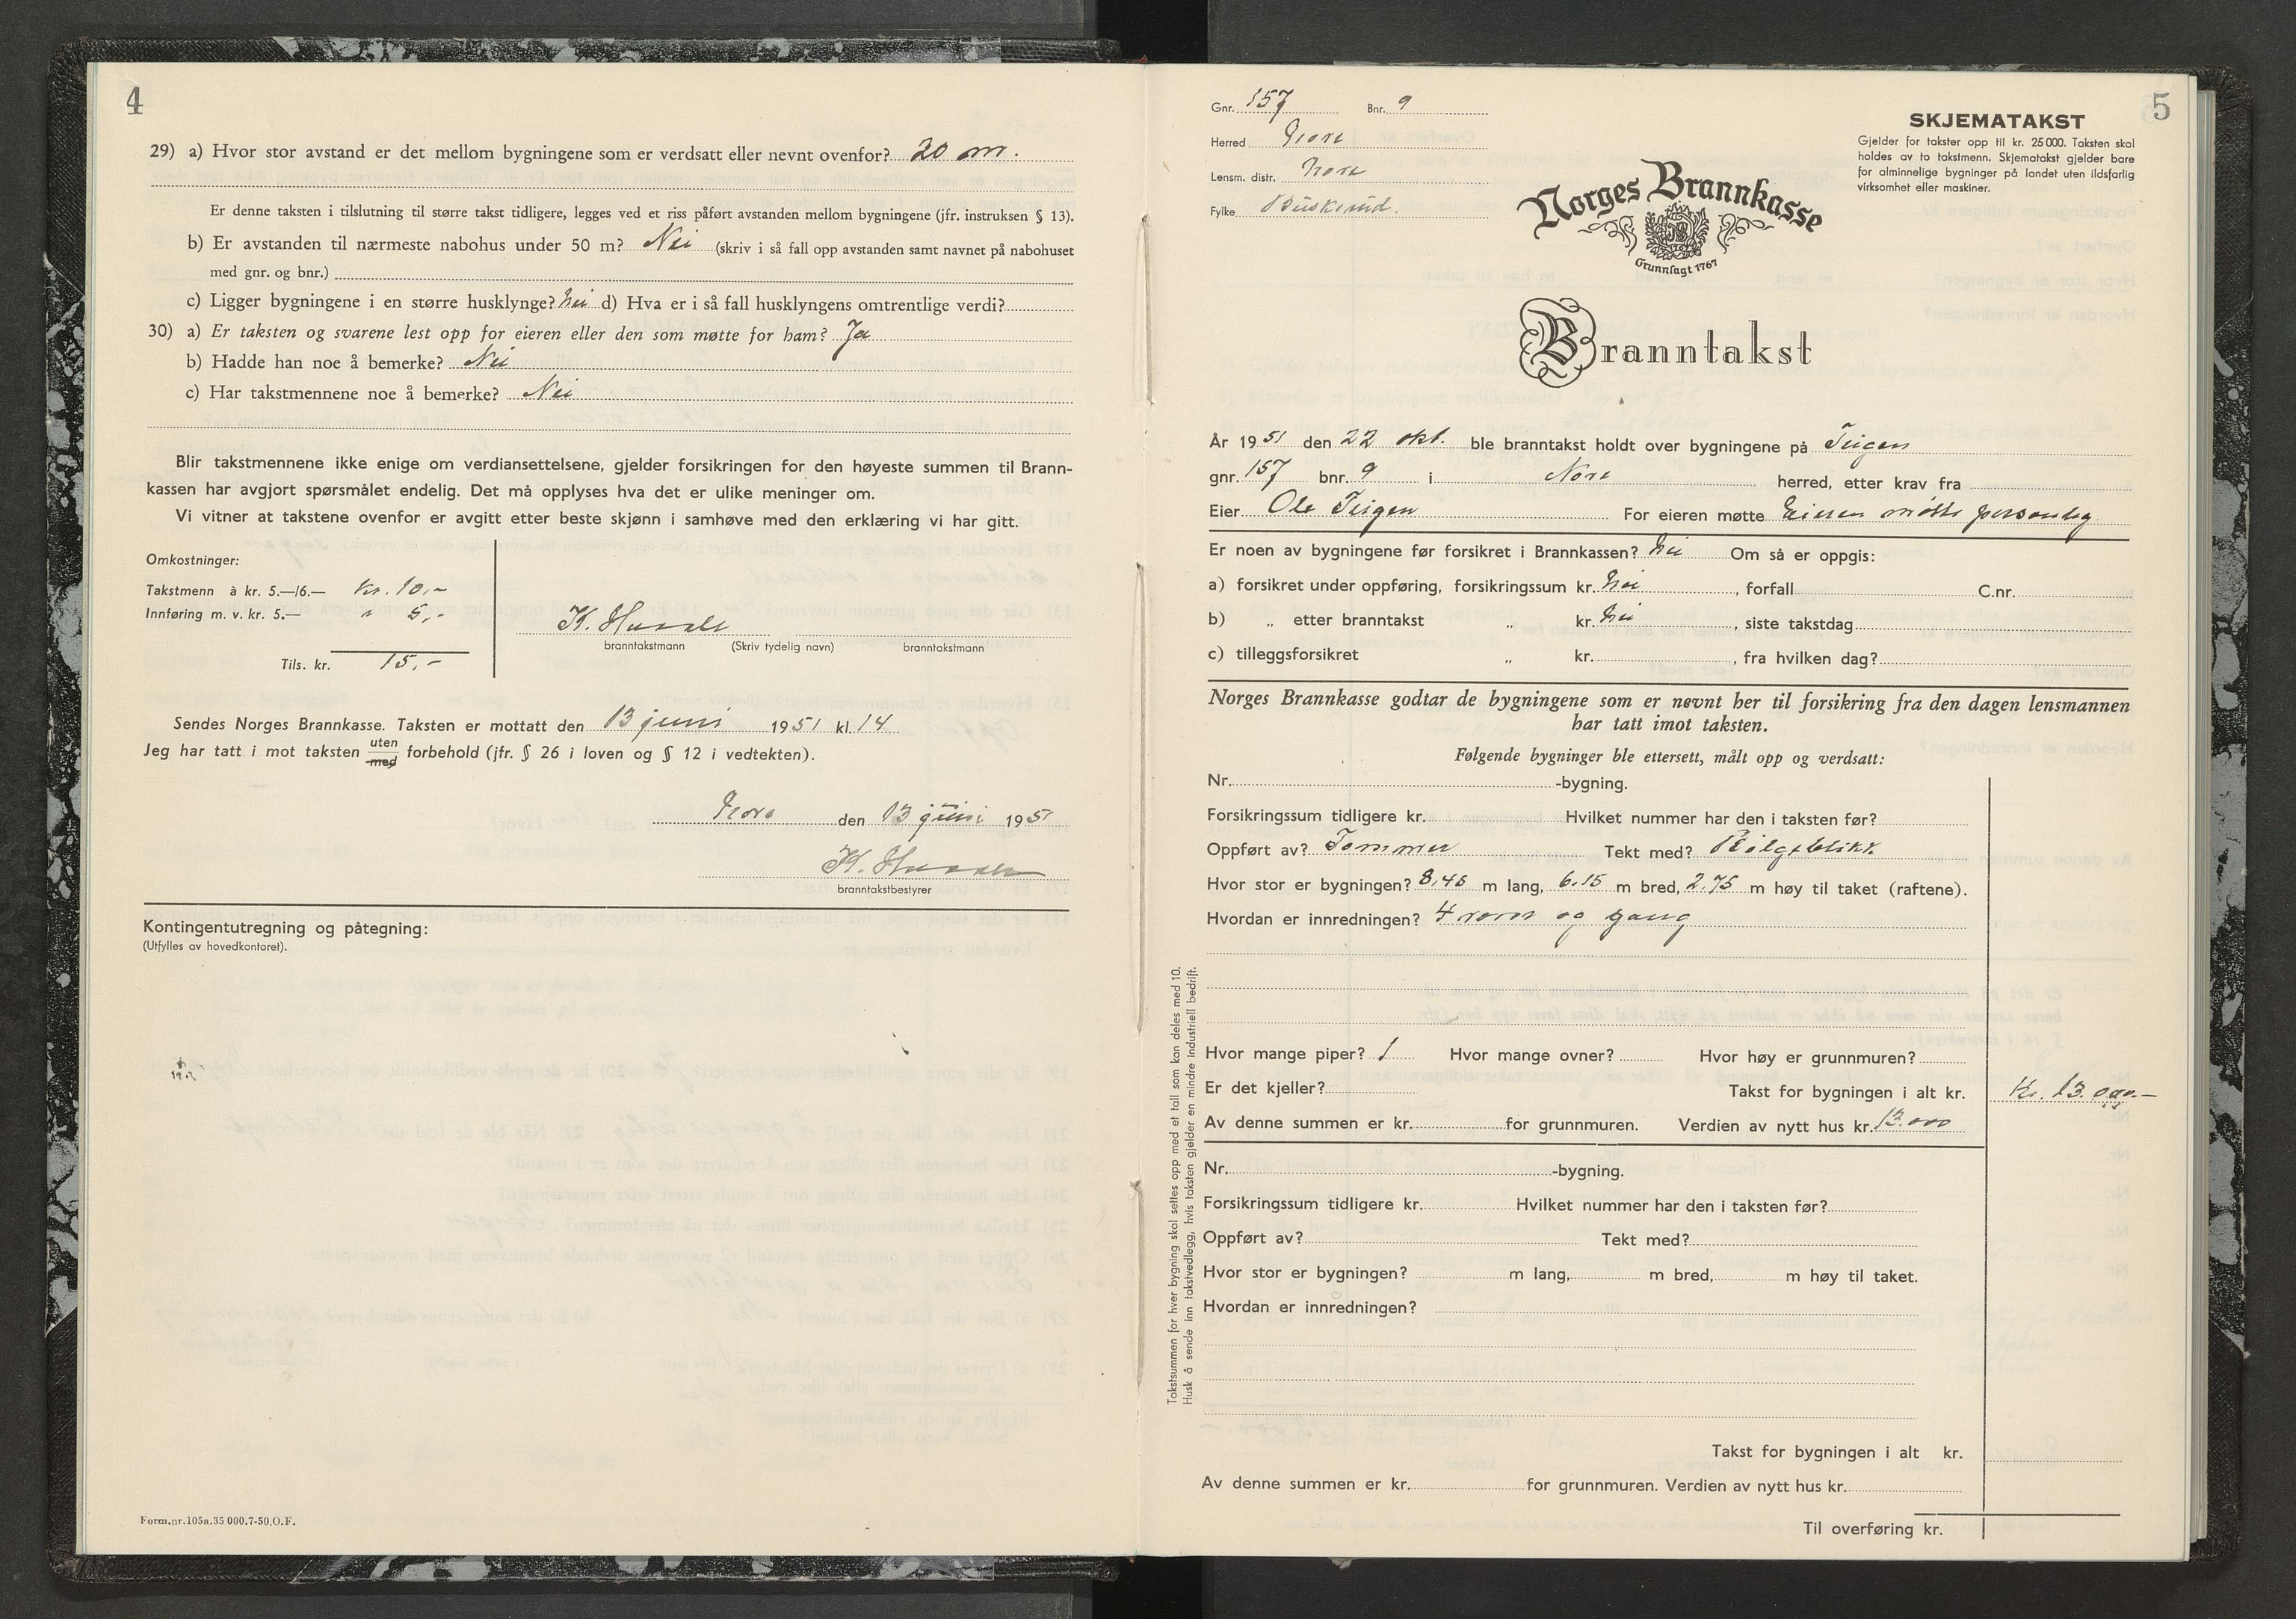 4
29) a) Hvor stor avstand er det mellom bygningene som er verdsatt eller nevnt ovenfor? 20 m.
Er denne taksten i tilslutning til større takst tidligere, legges ved et riss påført avstanden mellom bygningene (jfr. instruksen § 13).
b) Er avstanden til nærmeste nabohus under 50 m? Nei (skriv i så fall opp avstanden samt navnet på nabohuset
med gnr. og bnr.)
c) Ligger bygningene i en større husklynge? Nei d) Hva er i så fall husklyngens omtrentlige verdi?
30) a) Er taksten og svarene lest opp for eieren eller den som møtte for ham? Ja
b) Hadde han noe å bemerke? Nei
c) Har takstmennene noe å bemerke? Nei
Blir takstmennene ikke enige om verdiansettelsene, gjelder forsikringen for den høyeste summen til Brann-
kassen har avgjort spørsmålet endelig. Det må opplyses hva det er ulike meninger om.
Vi vitner at takstene ovenfor er avgitt etter beste skjønn i samhøve med den erklæring vi har gitt.
Omkostninger:
Takstmenn à kr. 5.—/6.— kr. 10,-
Innføring m. v. kr. 5.— " 5,-
Tils. kr. 15,-
K.
branntakstmann (Skriv tydelig navn) branntakstmann
Sendes Norges Brannkasse. Taksten er mottatt den 13 juni 1951 kl. 14
Jeg har tatt i mot taksten uten
med forbehold (jfr. § 26 i loven og § 12 i vedtekten).
Nore den 13 juni 1951
K.
branntakstbestyrer
Kontingentutregning og påtegning:
(Utfylles av hovedkontoret).
Form.nr.105a.35 000.7-50.O.F.
5
Gnr. 157 Bnr. 9
Herred Nore
Lensm. distr. Nore
Fylke Buskerud.
SKJEMATAKST
Gjelder for takster opp til kr. 25 000. Taksten skal
holdes av to takstmenn. Skjematakst gjelder bare
for alminnelige bygninger på landet uten ildsfarlig
virksomhet eller maskiner.
Norges Brannkasse
Grunnlagt 1767
Branntakst
År 1951 den 22 okt. ble branntakst holdt over bygningene på Teigen
gnr. 157 bnr. 9 i Nore herred, etter krav fra
Eier Ole Teigen For eieren møtte Eieren møtte personlig
Er noen av bygningene før forsikret i Brannkassen? Nei Om så er oppgis:
a) forsikret under oppføring, forsikringssum kr. Nei, forfall C.nr.
b) „ etter branntakst „ kr. Nei, siste takstdag
c) tilleggsforsikret „ kr., fra hvilken dag?
Norges Brannkasse godtar de bygningene som er nevnt her til forsikring fra den dagen lensmannen
har tatt imot taksten.
Følgende bygninger ble ettersett, målt opp og verdsatt:
Nr. -bygning.
Forsikringssum tidligere kr. Hvilket nummer har den i taksten før?
Oppført av? Tømmer Tekt med? Bølgeblikk
Hvor stor er bygningen? 8.45 m lang, 6.15 m bred, 2.75 m høy til taket (raftene).
Hvordan er innredningen? 4 rom og gang
Hvor mange piper? 1 Hvor mange ovner? Hvor høy er grunnmuren?
Er det kjeller? Takst for bygningen i alt kr. Kr. 13.000.-
Av denne summen er kr. for grunnmuren. Verdien av nytt hus kr. 13.000
Nr. -bygning.
Forsikringssum tidligere kr. Hvilket nummer har den i taksten før?
Oppført av? Tekt med?
Hvor stor er bygningen? m lang, m bred, m høy til taket.
Hvordan er innredningen?
Takst for bygningen i alt kr.
Av denne summen er kr. for grunnmuren. Verdien av nytt hus kr.
Til overføring kr.
Takstsummen for hver bygning skal settes opp med et tall som kan deles med 10.
Husk å sende inn takstvedlegg, hvis taksten gjelder en mindre industriell bedrift.